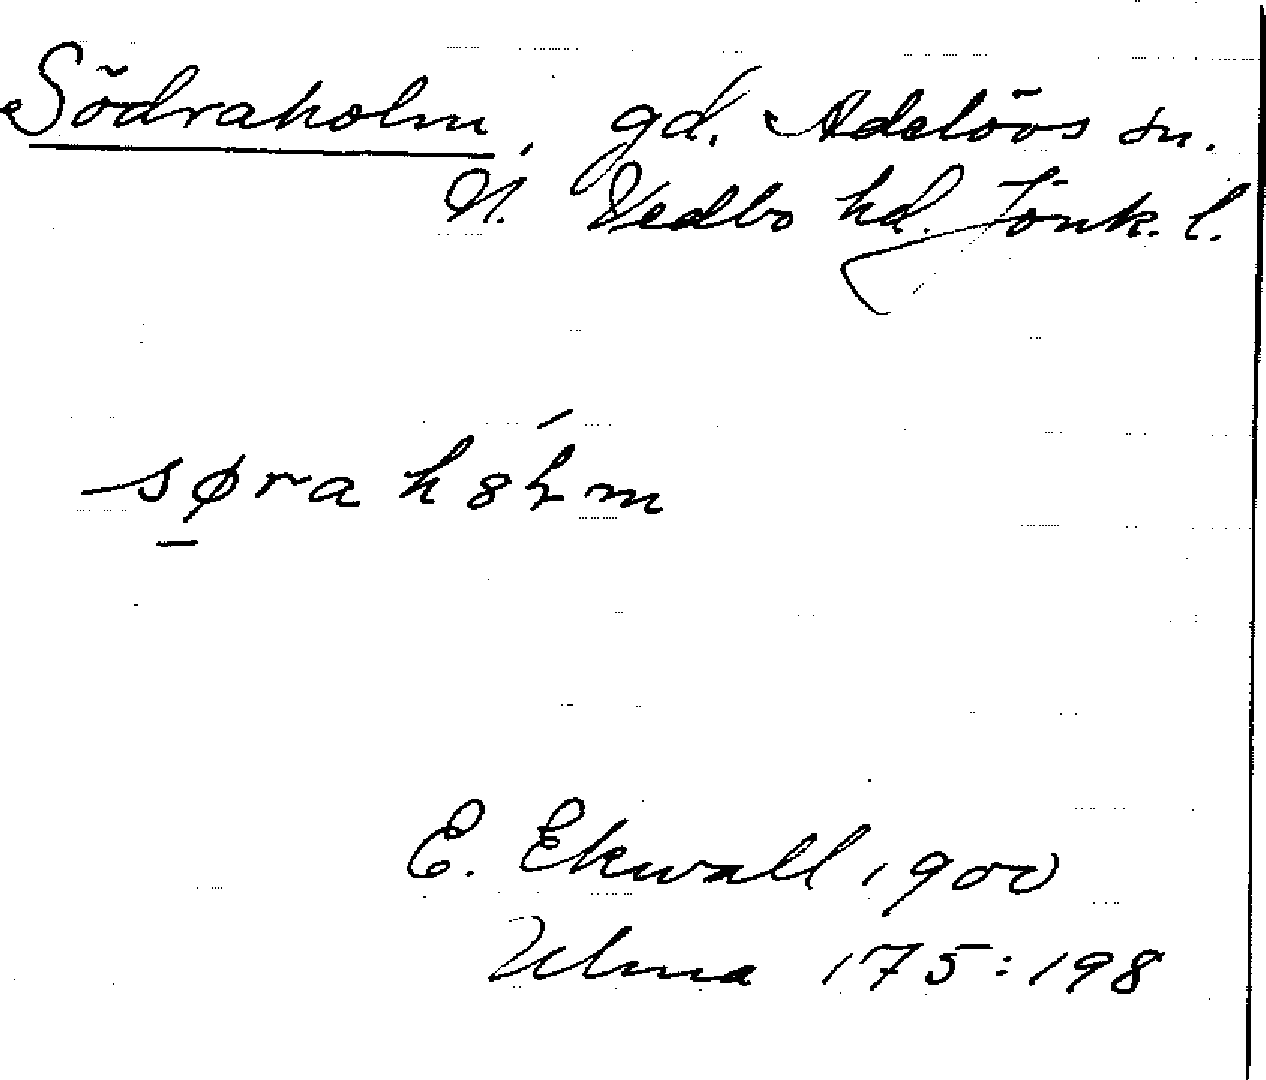 Södraholm, gd. Adelövs sn.
N. Vedbo hd. Jönk. l.
søra h8łm
E. Ekwall 1900
Ulma 175:198